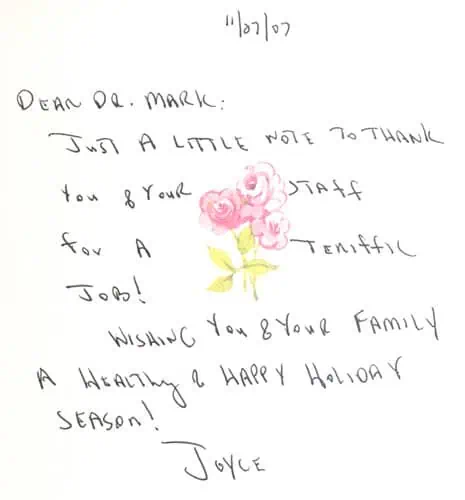 11/27/07
DEAR DR. MARK:
JUST A LITTLE NOTE TO THANK
YOU & YOUR STAFF
FOR A TERIFFIC
JOB!
WISHING YOU & YOUR FAMILY
A HEALTHY & HAPPY HOLIDAY
SEASON!
JOYCE